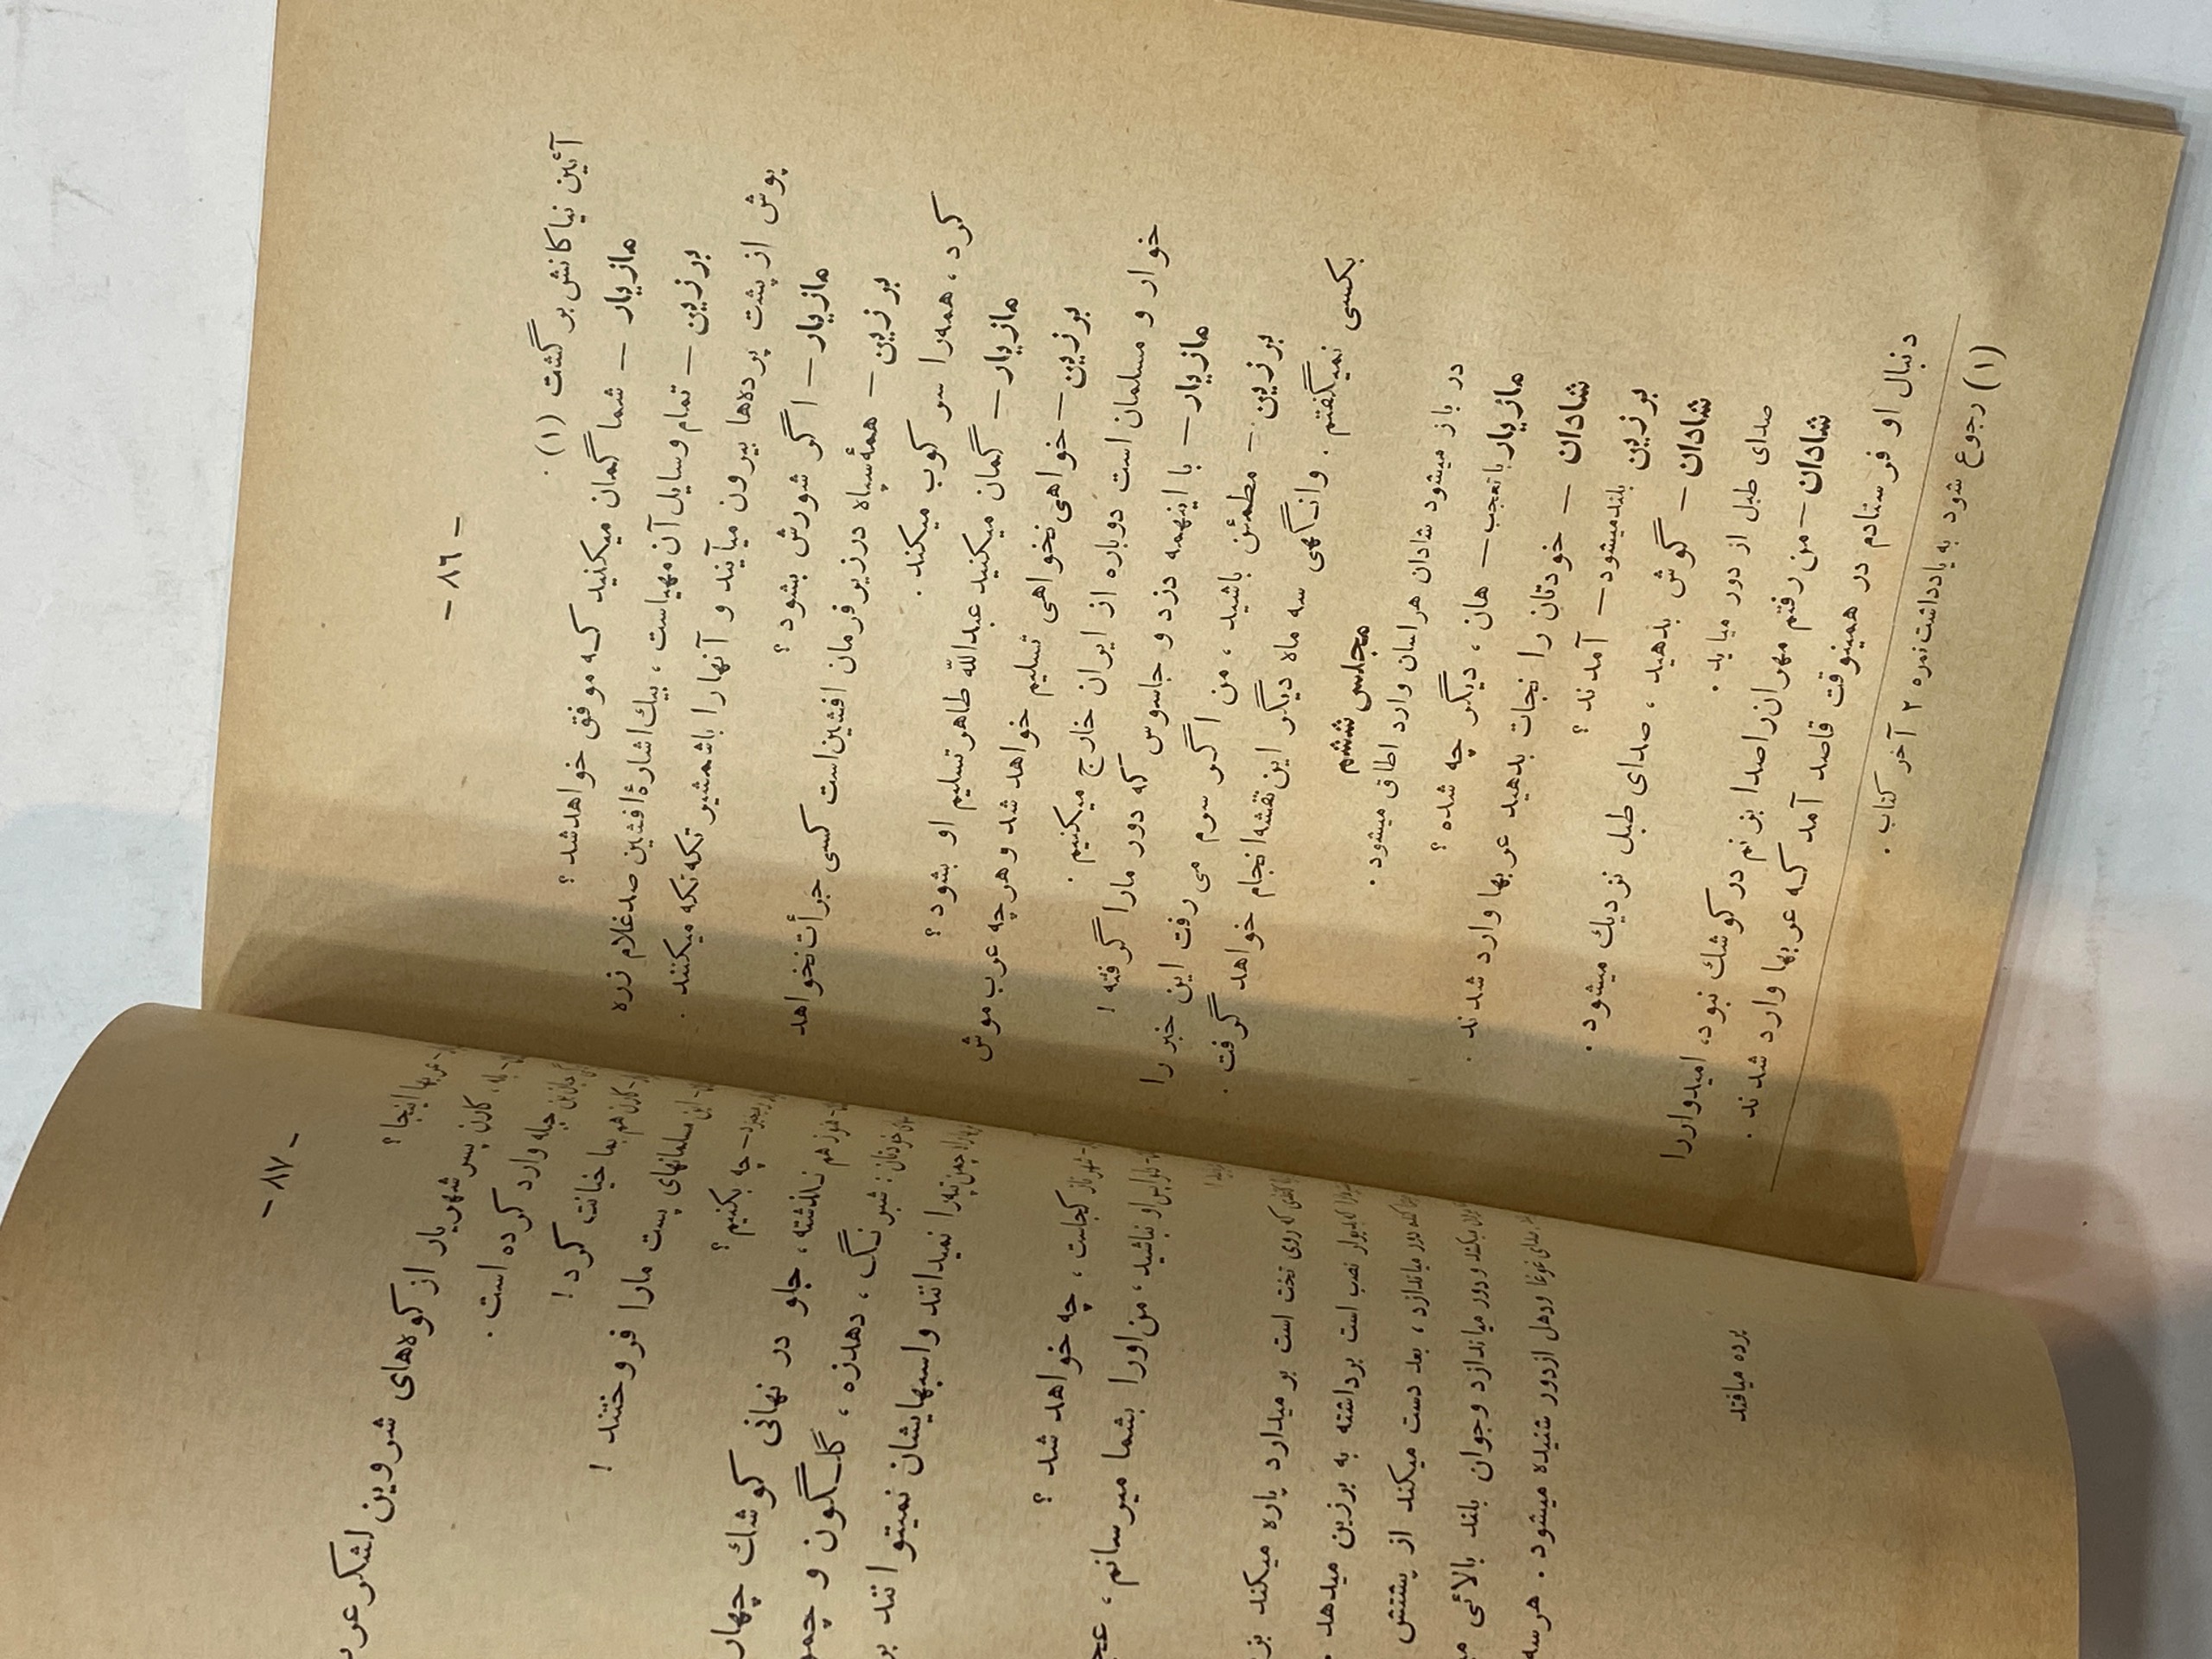 - ۸٦ -
آئین نیاکانش برگشت (۱) .
مازیار — شما گمان میکنید که موفق خواهدشد ؟
برزین — تمام وسایل آن مهیاست ، بیك اشارهٔ افشین صدغلام زره
پوش از پشت پرده‌ها بیرون میآیند و آنهارا باشمشیر تکه تکه میکنند .
مازیار — اگر شورش بشود ؟
برزین — همهٔ سپاه درزیر فرمان افشین‌است کسی جرأت نخواهد
کرد ، همه‌را سر کوب میکند .
مازیار — گمان میکنید عبدالله طاهر تسلیم او بشود ؟
برزین — خواهی نخواهی تسلیم خواهد شد وهرچه عرب موش
خوار و مسلمان است دوباره از ایران خارج میکنیم .
مازیار — با اینهمه دزد و جاسوس که دور مارا گرفته !
برزین — مطمئن باشید ، من اگر سرم می رفت این خبر را
بکسی نمیگفتم . وانگهی سه ماه دیگر این نقشه انجام خواهد گرفت .
مجلس ششم
در باز میشود شادان هراسان وارد اطاق میشود .
مازیار باتعجب — هان ، دیگر چه شده ؟
شادان — خودتان را نجات بدهید عربها وارد شدند .
برزین بلندمیشود — آمدند ؟
شادان — گوش بدهید ، صدای طبل نزدیك میشود .
صدای طبل از دور میاید .
شادان — من رفتم مهران‌راصدا بزنم در کوشك نبود، امیدواررا
دنبال او فرستادم در همینوقت قاصد آمد که عربها وارد شدند .
(۱) رجوع شود به یادداشت نمره ۲ آخر کتاب .
- ۸۷ -
عربها اینجا ؟
بله ، کارن پسر شهریار از کوههای شروین لشکر عرب
جبله وارد کرده است .
کارن هم بما خیانت کرد !
این مسلمانهای پست مارا فروختند !
چه بکنیم ؟
هنوز هم نگذشته ، جلو در نهانی کوشك چهار
خودتان : شبرنگ ، دهدزه ، گلگون و
را نمیدانند واسبهایشان نمیتوانند
شهرناز کجاست ، چه خواهد شد ؟
او نباشید ، من اورا بشما میرسانم ،
که روی تخت است بر میدارد پاره میکند
نصب است برداشته به برزین میدهد .
دور میاندازد ، بعد دست میکند از پشتش
میکند و دور میاندازد وجوان بلند بالائی
غوغا ودهل ازدور شنیده میشود . هرسه
پرده میافتد